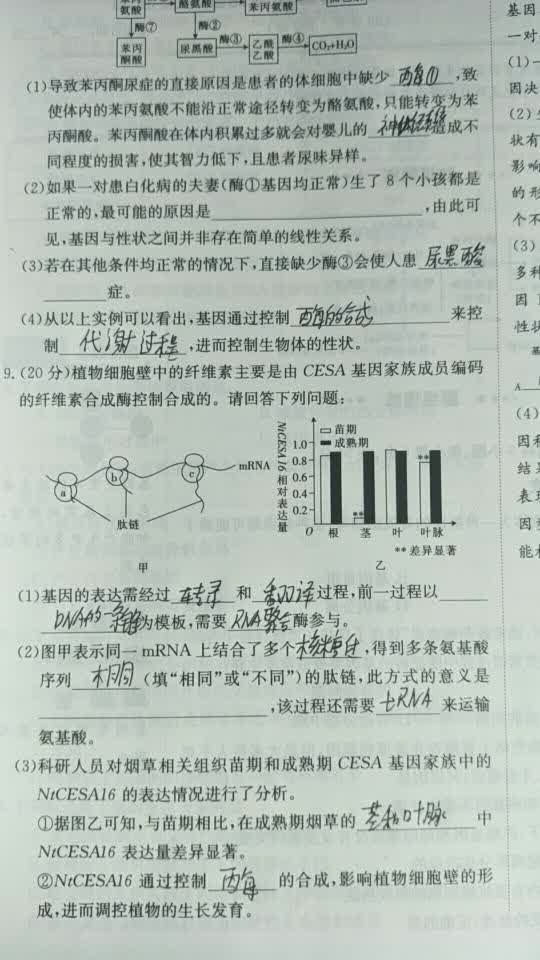 氨酸
酪氨酸
苯丙氨酸
酶⑦
酶②
苯丙
酮酸
尿黑酸
酶③
乙酰
乙酸
酶④
CO₂+H₂O
(1)导致苯丙酮尿症的直接原因是患者的体细胞中缺少 酶① ,致
使体内的苯丙氨酸不能沿正常途径转变为酪氨酸,只能转变为苯
丙酮酸。苯丙酮酸在体内积累过多就会对婴儿的 神经系统 造成不
同程度的损害,使其智力低下,且患者尿味异样。
(2)如果一对患白化病的夫妻(酶①基因均正常)生了8个小孩都是
正常的,最可能的原因是 ,由此可
见,基因与性状之间并非存在简单的线性关系。
(3)若在其他条件均正常的情况下,直接缺少酶③会使人患 尿黑酸
症。
(4)从以上实例可以看出,基因通过控制 酶的合成 来控
制 代谢过程 ,进而控制生物体的性状。
9.(20分)植物细胞壁中的纤维素主要是由CESA基因家族成员编码
的纤维素合成酶控制合成的。请回答下列问题:
a
b
c
mRNA
肽链
甲
NtCESA16相对表达量
苗期
成熟期
1.0
0.8
0.6
0.4
0.2
O
**
**
根 茎 叶 叶脉
**差异显著
乙
(1)基因的表达需经过 转录 和 翻译 过程,前一过程以
DNA的一条链 为模板,需要 RNA聚合 酶参与。
(2)图甲表示同一mRNA上结合了多个 核糖体 ,得到多条氨基酸
序列 相同 (填“相同”或“不同”)的肽链,此方式的意义是
,该过程还需要 tRNA 来运输
氨基酸。
(3)科研人员对烟草相关组织苗期和成熟期CESA基因家族中的
NtCESA16的表达情况进行了分析。
①据图乙可知,与苗期相比,在成熟期烟草的 茎和叶脉 中
NtCESA16表达量差异显著。
②NtCESA16通过控制 酶 的合成,影响植物细胞壁的形
成,进而调控植物的生长发育。
基因
一对
(1)一
因决
(2)
状有
影响
的形
个不
(3)
多种
因
性状
基
A
(4)
因和
结
表现
因
能